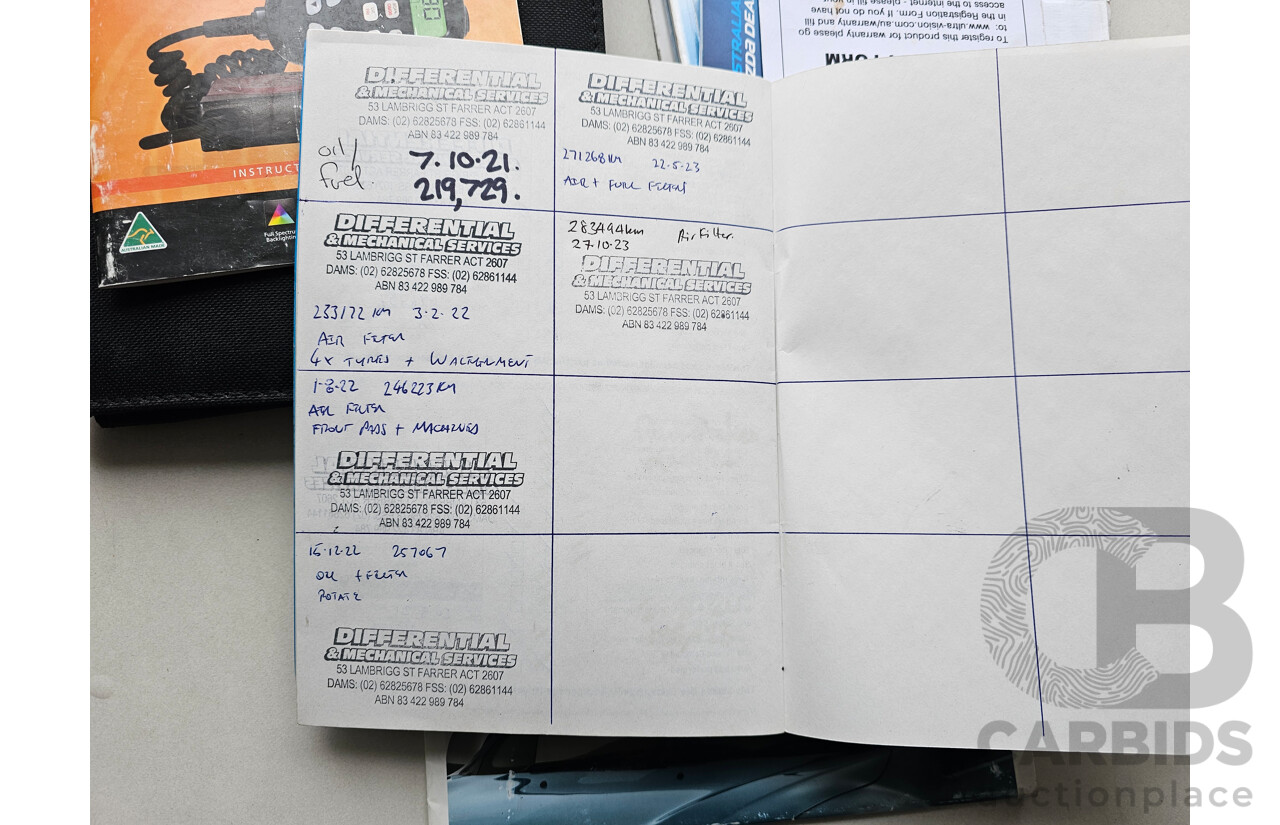 INSTRUCT
AUSTRALIAN MADE
Full Spectru
Backlighting
STRALIAN
ZDA DEA
To register this product for warranty please go
to: www.ultra-vision.com.au/warranty and fill
in the Registration Form. If you do not have
access to the internet - please fill in
FORM
DIFFERENTIAL
& MECHANICAL SERVICES
53 LAMBRIGG ST FARRER ACT 2607
DAMS: (02) 62825678 FSS: (02) 62861144
ABN 83 422 989 784
oil/
fuel.
7.10.21.
219,729.
DIFFERENTIAL
& MECHANICAL SERVICES
53 LAMBRIGG ST FARRER ACT 2607
DAMS: (02) 62825678 FSS: (02) 62861144
ABN 83 422 989 784
233172 KM 3.2.22
AIR FILTER
4X TYRES + W/ALIGNMENT
1-8-22 246223KM
AIR FILTER
FRONT PADS + MACHINED
DIFFERENTIAL
& MECHANICAL SERVICES
53 LAMBRIGG ST FARRER ACT 2607
DAMS: (02) 62825678 FSS: (02) 62861144
ABN 83 422 989 784
15.12.22 257067
OIL + FILTER
ROTATE
DIFFERENTIAL
& MECHANICAL SERVICES
53 LAMBRIGG ST FARRER ACT 2607
DAMS: (02) 62825678 FSS: (02) 62861144
ABN 83 422 989 784
DIFFERENTIAL
& MECHANICAL SERVICES
53 LAMBRIGG ST FARRER ACT 2607
DAMS: (02) 62825678 FSS: (02) 62861144
ABN 83 422 989 784
271268KM 22-5-23
AIR + FUEL FILTER
283494km Air Filter.
27.10.23
DIFFERENTIAL
& MECHANICAL SERVICES
53 LAMBRIGG ST FARRER ACT 2607
DAMS: (02) 62825678 FSS: (02) 62861144
ABN 83 422 989 784
CB
CARBIDS
auctionplace